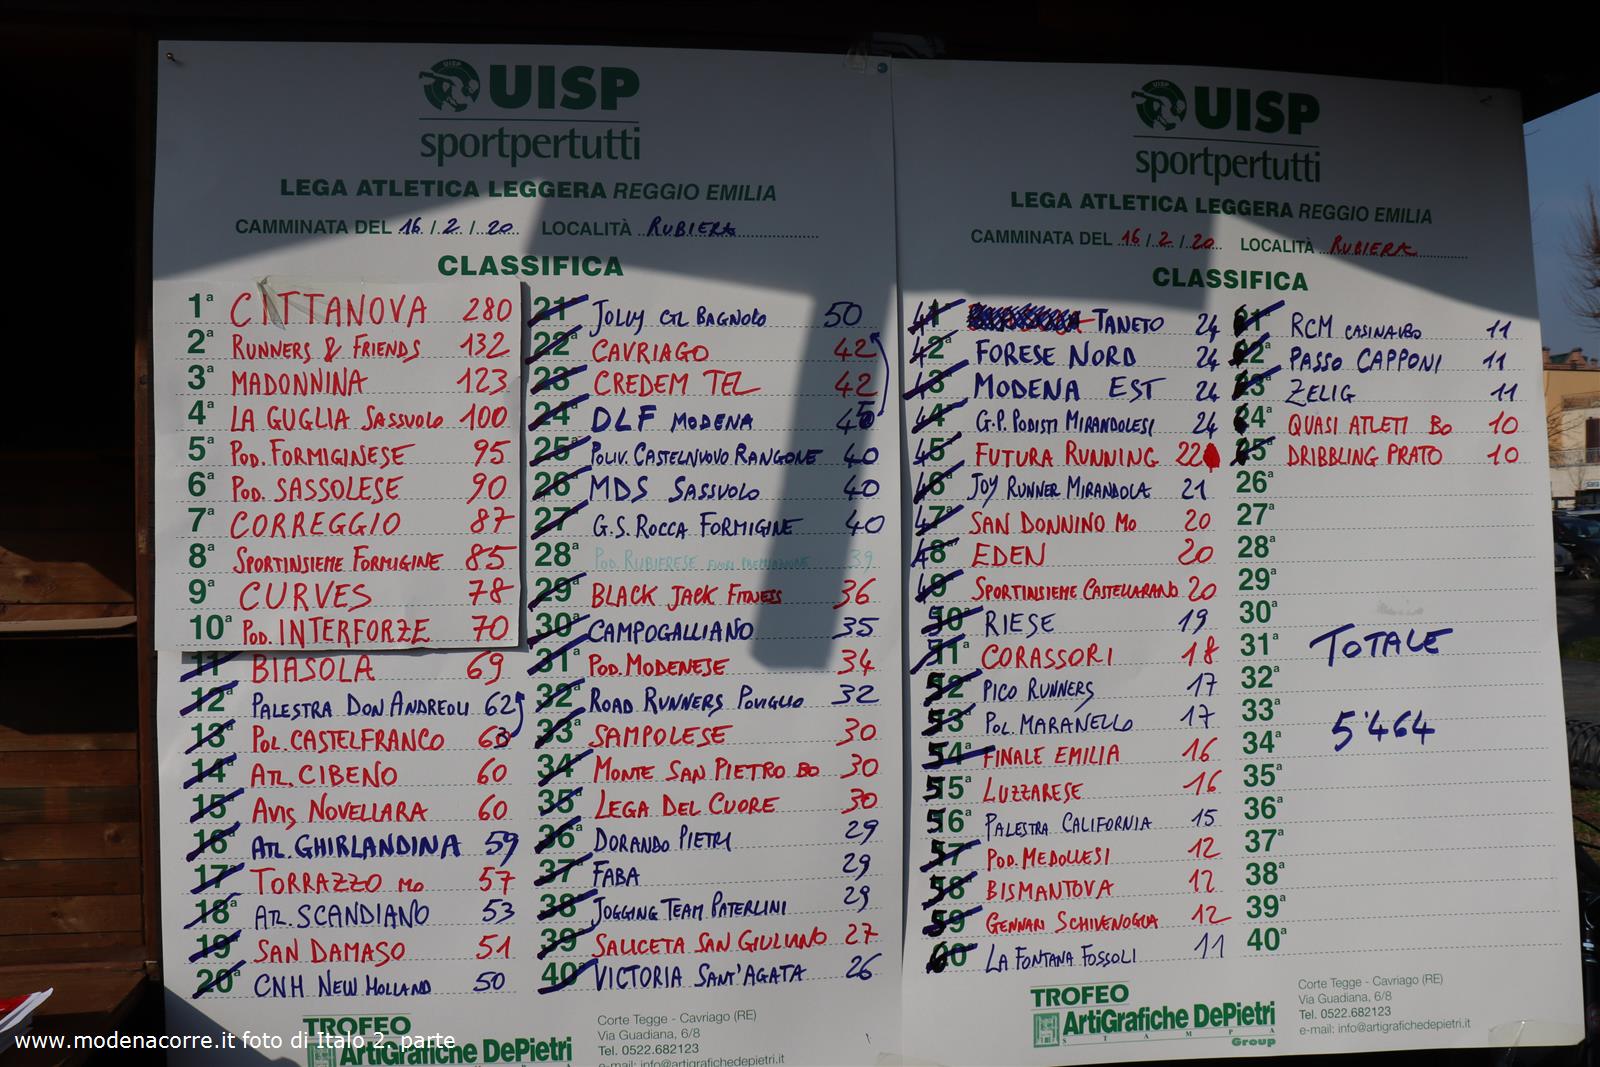 UISP
sportpertutti
LEGA ATLETICA LEGGERA REGGIO EMILIA
CAMMINATA DEL 16 / 2 / 20 LOCALITÀ RUBIERA
CLASSIFICA
1ª CITTANOVA 280
2ª RUNNERS & FRIENDS 132
3ª MADONNINA 123
4ª LA GUGLIA SASSUOLO 100
5ª POD. FORMIGINESE 95
6ª POD. SASSOLESE 90
7ª CORREGGIO 87
8ª SPORTINSIEME FORMIGINE 85
9ª CURVES 78
10ª POD. INTERFORZE 70
11ª BIASOLA 69
12ª PALESTRA DON ANDREOLI 62
13ª POL. CASTELFRANCO 63
14ª ATL. CIBENO 60
15ª AVIS NOVELLARA 60
16ª ATL. GHIRLANDINA 59
17ª TORRAZZO MO 57
18ª ATL. SCANDIANO 53
19ª SAN DAMASO 51
20ª CNH NEW HOLLAND 50
21ª JOLLY CTL BAGNOLO 50
22ª CAVRIAGO 42
23ª CREDEM TEL 42
24ª DLF MODENA 45
25ª POLIV. CASTELNUOVO RANGONE 40
26ª MDS SASSUOLO 40
27ª G.S. ROCCA FORMIGINE 40
28ª POD. RUBIERESE FUORI PREMIAZIONE 39
29ª BLACK JACK FITNESS 36
30ª CAMPOGALLIANO 35
31ª POD. MODENESE 34
32ª ROAD RUNNERS POVIGLIO 32
33ª SAMPOLESE 30
34ª MONTE SAN PIETRO BO 30
35ª LEGA DEL CUORE 30
36ª DORANDO PIETRI 29
37ª FABA 29
38ª JOGGING TEAM PATERLINI 29
39ª SALICETA SAN GIULIANO 27
40ª VICTORIA SANT'AGATA 26
TROFEO
ArtiGrafiche DePietri
Corte Tegge - Cavriago (RE)
Via Guadiana, 6/8
Tel. 0522.682123
e-mail: info@artigrafichedepietri.it
UISP
sportpertutti
LEGA ATLETICA LEGGERA REGGIO EMILIA
CAMMINATA DEL 16 / 2 / 20 LOCALITÀ RUBIERA
CLASSIFICA
41ª TANETO 24
42ª FORESE NORD 24
43ª MODENA EST 24
44ª G.P. PODISTI MIRANDOLESI 24
45ª FUTURA RUNNING 22
46ª JOY RUNNER MIRANDOLA 21
47ª SAN DONNINO MO 20
48ª EDEN 20
49ª SPORTINSIEME CASTELLARANO 20
50ª RIESE 19
51ª CORASSORI 18
52ª PICO RUNNERS 17
53ª POL. MARANELLO 17
54ª FINALE EMILIA 16
55ª LUZZARESE 16
56ª PALESTRA CALIFORNIA 15
57ª POD. MEDOLLESI 12
58ª BISMANTOVA 12
59ª GENNARI SCHIVENOGLIA 12
60ª LA FONTANA FOSSOLI 11
21ª RCM CASINALBO 11
22ª PASSO CAPPONI 11
23ª ZELIG 11
24ª QUASI ATLETI BO 10
25ª DRIBBLING PRATO 10
26ª
27ª
28ª
29ª
30ª
31ª TOTALE
32ª
33ª
34ª 5'464
35ª
36ª
37ª
38ª
39ª
40ª
TROFEO
ArtiGrafiche DePietri
STAMPA
Group
Corte Tegge - Cavriago (RE)
Via Guadiana, 6/8
Tel. 0522.682123
e-mail: info@artigrafichedepietri.it
www.modenacorre.it foto di Italo 2. parte